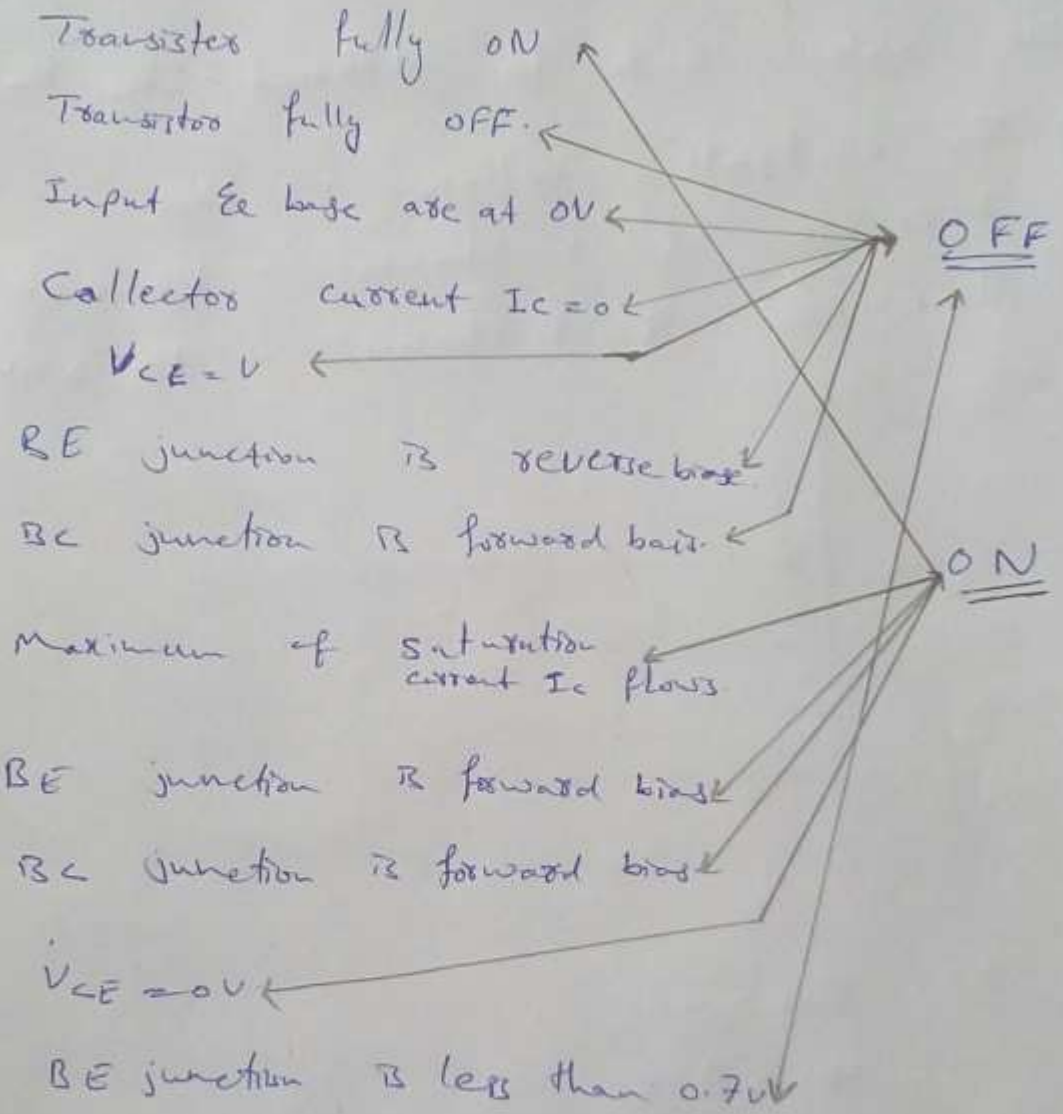 Transister fully ON
Transistor fully OFF.
Input & base are at 0V
OFF
Collector current Ic = 0
VCE = V
BE junction is reverse bias.
BC junction is forward bais.
ON
Maximum of saturation
current Ic flows
BE junction is forward bias
BC junction is forward bias
VCE = 0V
BE junction is less than 0.7v